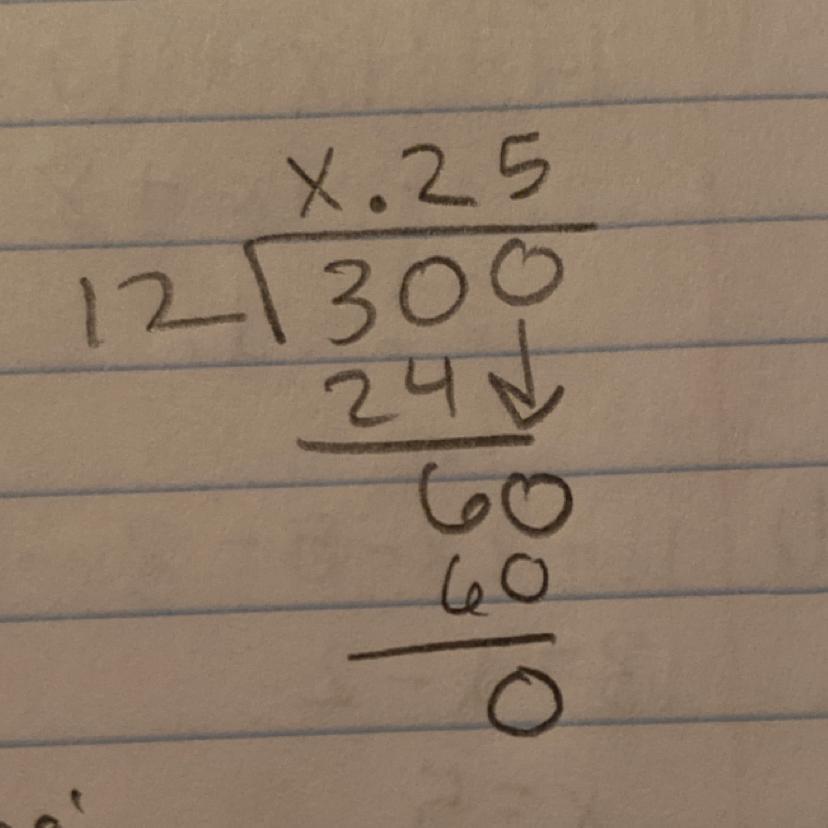 x.25
12√300
24
60
60
0